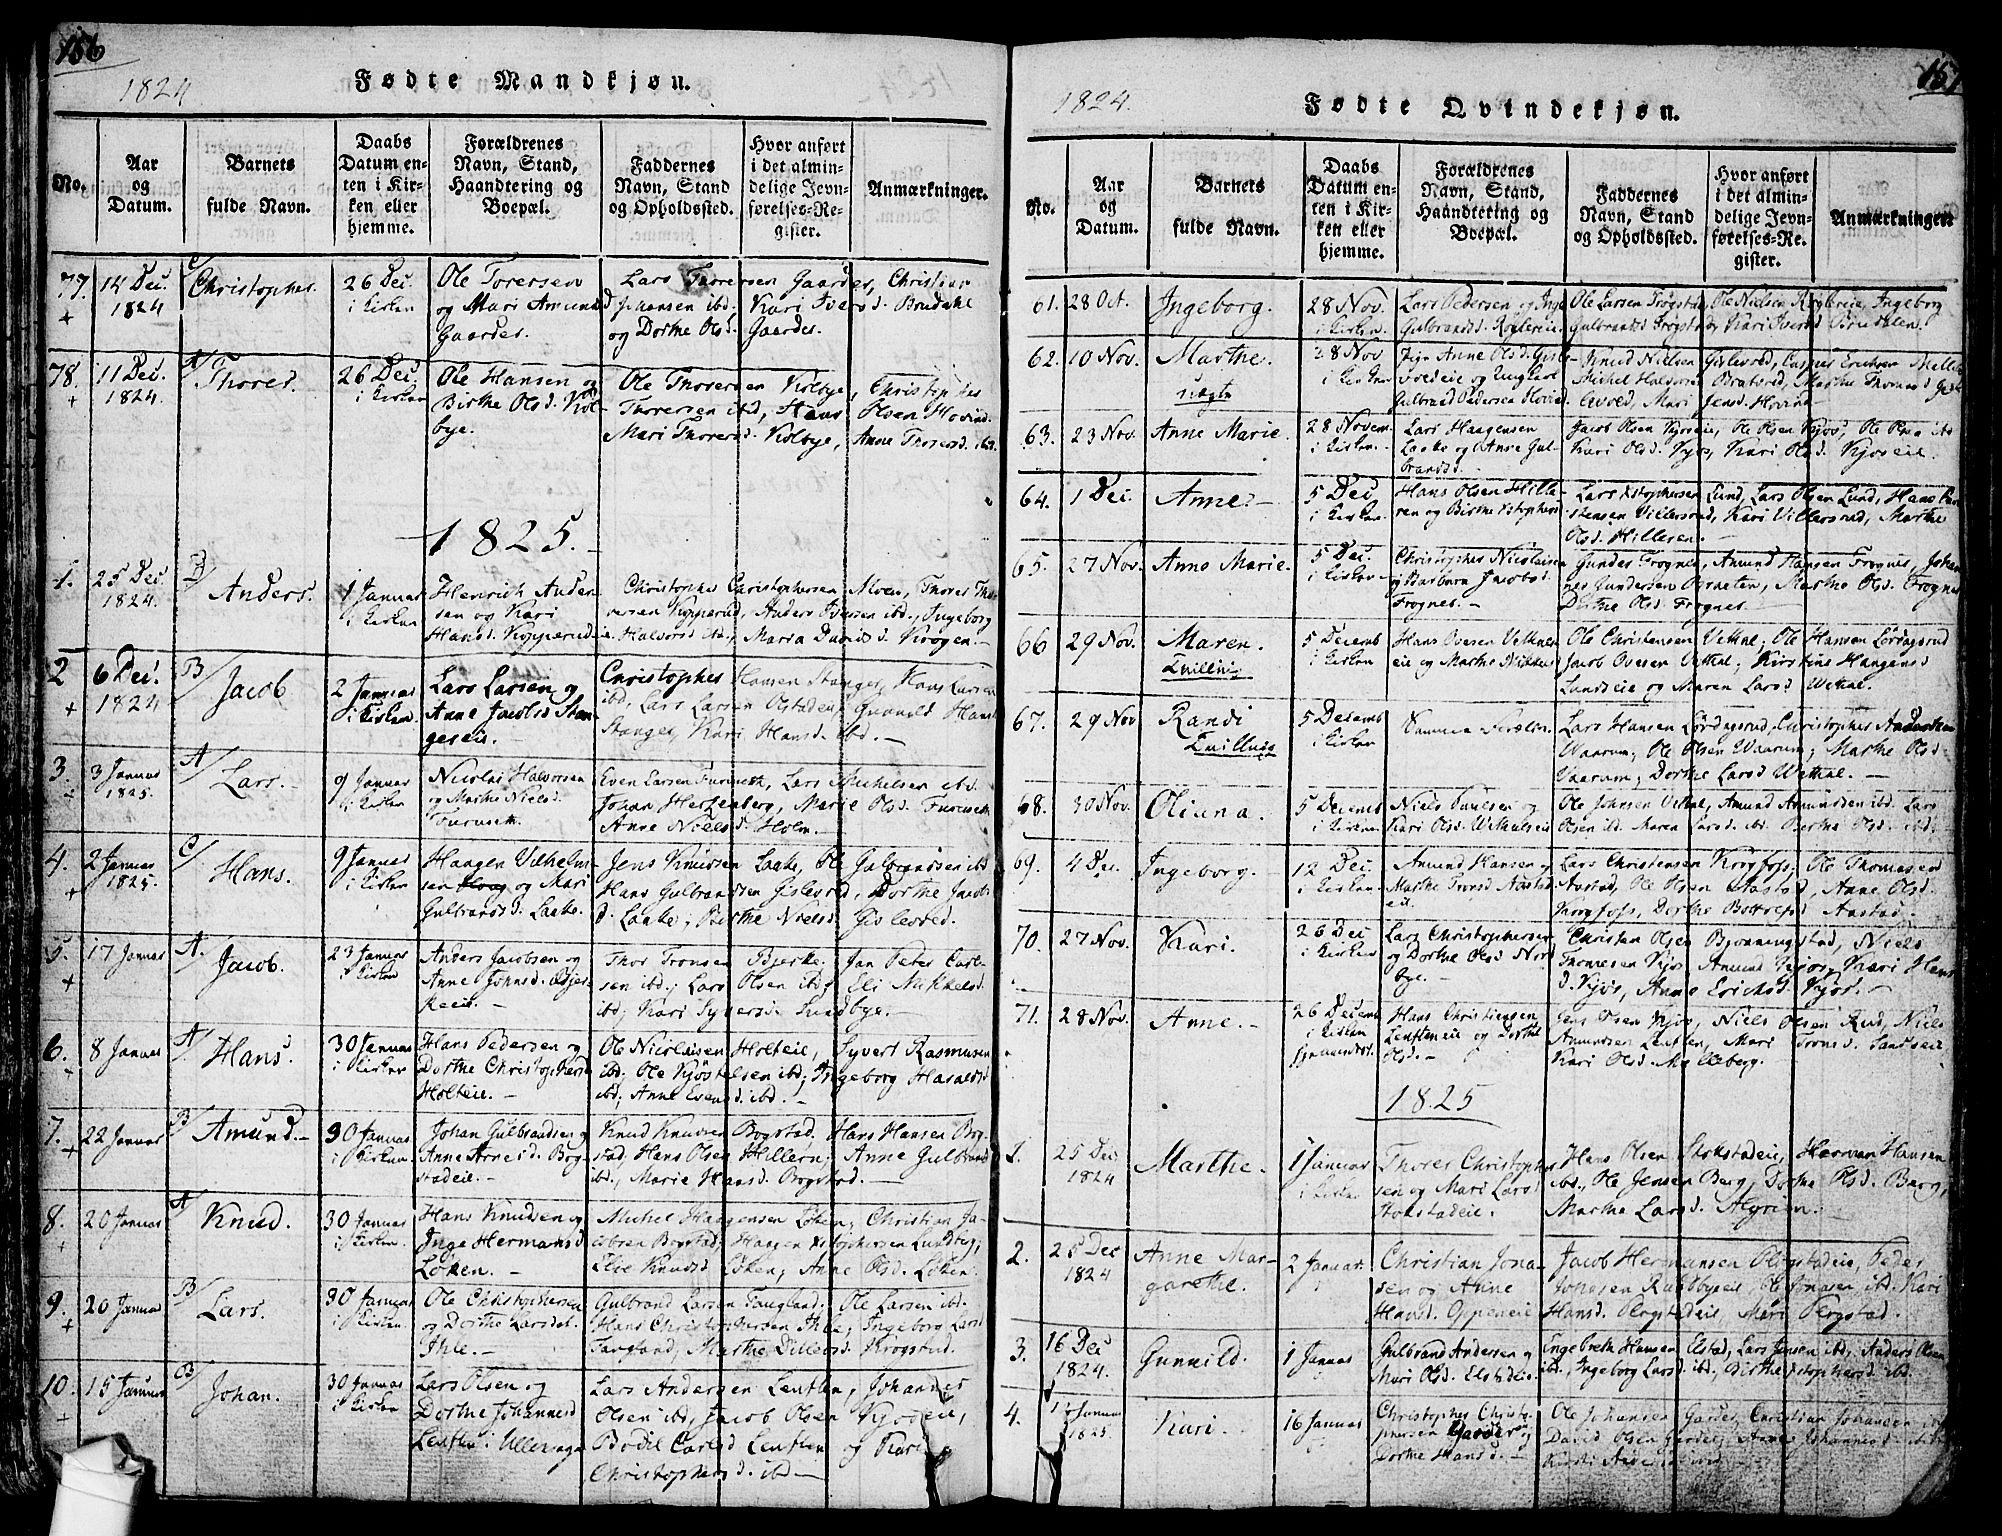 156
1824
Fødte Mandkjøn.
No.
Aar
og
Datum.
Barnets
fulde Navn.
Daabs
Datum en-
ten i Kir-
ken eller
hjemme.
Forældrenes
Navn, Stand,
Haandtering og
Boepæl.
Faddernes
Navn, Stand
og Opholdssted.
Hvor anført
i det almin-
delige Jevn-
førelses-Re-
gister.
Anmærkninger.
77. 14 Dec. 1824
C/ Christopher.
26 Dec i Kirken
Ole Torersen
og Mari Amunds
Gaarder.
Lars Thorersen Gaarder, Christian
Johansen ibd, Kari Ivers d. Brudahl
og Dorthe Olsd. Gaarder.
78. 11 Dec. 1824.
A/ Thorer.
26 Dec i Kirken
Ole Hansen og
Birthe Olsd. Kol-
bye.
Ole Thorersen Kolbye, Christopher
Thorersen ibd, Hans Olsen Hovind
Mari Thorersd. Kolbye, Anne Thorersd. ibd.
1825.
1. 25 Dec. 1824.
B/ Anders.
1 Januar i Kirken
Henrich Ander-
sen og Kari
Hansd. Kopperud
Christopher Christophersen Moen, Thorer Tho-
rersen Kopperud, Anders Iversen ibd., Ingeborg
Halvorsd. ibd., Maria Davids d. Krogen.
2 6 Dec. 1824
B/ Jacob
2 Januar i Kirken
Lars Larsen og
Anne Jacobsd Stan-
geseie.
Christopher Hansen Stanger, Hans Larsen
ibd, Lars Larsen Olstadeie, Gunild Hansd
Stanger, Kari Hansd. ibd.
3. 3 Januar 1825.
A/ Lars.
9 Januar i Kirken
Nicolai Halvorsen
og Marthe Nielsd.
Furuseth.
Even Larsen Furuseth, Lars Michelsen ibd.
Johan Hertzenberg, Marie Olsd. Furuseth
Anne Nielsd. Holm.
4. 2 Januar 1825.
C/ Hans.
9 Januar i Kirken
Haagen Vilhelm-
sen og Mari
Gulbrandsd. Laake.
Jens Knudsen Laake, Ole Gulbrandsen ibd
Hans Gulbrandsen Gislevold, Dorthe Jacobs
d. Laake, Birthe Nielsd. Gislevold.
5. 17 Januar
A. Jacob.
23 Januar i Kirken
Anders Jacobsen og
Anne Johnsd. Bjer-
keeie.
Thor Tronsen Bjerke. Jan Peter Carl-
sen ibd; Lars Olsen ibd; Eli Mikkelsd.
ibd; Kari Syversd. Sundbye.
6. 8 Januar
A/ Hans.
30 Januar i Kirken
Hans Pedersen og
Dorthe Christophersd
Holteie.
Ole Nicolaisen Holteie, Syvert Rasmusen
ibd; Ole Kjøstelsen ibd; Ingeborg Haraldsd
ibd; Anne Evensd. ibd.
7. 22 Januar
B/ Amund.
30 Januar i Kirken
Johan Gulbrandsen og
Anne Arneisd. Bog-
stadeie.
Knud Knudsen Bogstad. Hans Hansen Bog-
stad, Hans Olsen Hillern, Anne Gulbrandsd
ibd., Marie Hansd. Bogstad.
8. 20 Januar
A/ Knud.
30 Januar i Kirken
Hans Knudsen og
Inge Hermansd
Løken.
Michel Haagensen Løken, Christian Ja-
cobsen Bogstad, Haagen Xstophersen Lundbye,
Elie Knudsd Løken, Anne Olsd. Løken.
9. 20 Januar
B/ Lars.
30 Januar i Kirken
Ole Christophersen
og Dorthe Larsdat.
Ihle.
Gulbrand Larsen Taugland. Ole Larsen ibd.
Hans Christophersen Ihle, Ingeborg Larsd
Taugland, Marthe Krogstad.
10. 15 Januar
B/ Johan.
30 Januar i Kirken
Lars Olsen og
Dorthe Johannesd
Leuflen i Ullensager
Lars Andersen Leuflen, Johannes
Olsen ibd, Jacob Olsen
Bodil Carlsd Leuflen og Kari
Christophersd. ibd
157
1824.
Fødte Qvindekjøn.
No.
Aar
og
Datum.
Barnets
fulde Navn.
Daabs
Datum en-
ten i Kir-
ken eller
hjemme.
Forældrenes
Navn, Stand,
Haandtering og
Boepæl.
Faddernes
Navn, Stand
og Opholdssted.
Hvor anført
i det almin-
delige Jevn-
førelses-Re-
gister.
Anmærkninger.
61. 28 Oct.
Ingeborg.
28 Nov i Kirken.
Lars Pedersen og Inge
Gulbrandsd.
Ole Larsen Frogstad, Ole Nielsen Ingeborg
Gulbrandsd Frogstad, Kari Iversd Brudalen.
62. 10 Nov.
Marthe.
uægte
28 Nov i Kirken
Pige Anne Olsd. Gisle-
voldeie og Ungkarl
Gulbrand Pedersen Hovind
Knud Nielsen Gislevold, Casper Erichsen
Michel Halvorsen Bratvold, Marthe Thomasd Gis-
levold, Mari Jensd. Hovind
63. 23 Nov.
Anne Marie.
28 Novem i Kirken.
Lars Haagensen
Laake og Anne Gul-
brandsd.
Jacob Olsen Kjoseie, Ole Olsen Kjos, Ole Olsen ibd
Kari Olsd. Kjos, Kari Olsd. Kjoseie.
64. 1 Dec.
Anne.
5 Dec i Kirken
Hans Olsen Hille-
ren og Birthe Xstophersd
Lars Xstophersen Lund, Lars Olsen Lund, Hans
Villersrud, Kari Villersrud, Marthe
Olsd. Hilleren.
65. 27 Nov.
Anne Marie.
5 Dec. i Kirken
Christopher Nicolaisen
og Barbara Jacobsd.
Frogner.
Gunder Frogner, Amund Hansen Frogner, Johan-
nes Gundersen Marthe Olsd. Frogner
Dorthe Olsd. Frogner.
66 29 Nov.
Maren.
Tvilling
5 Decemb i Kirken
Hans Ovesen Vethal-
eie og Marthe Nikkelsd
Ole Christensen Vethal; Ole Hansen Lørdagsrud
Jacob Ovesen Vethal; Kirstine Haagensd
Lundseie og Maren Larsd Vethal.
67. 29 Nov
Randi
Tvilling
5 Decemb i Kirken
Samme Forældre.
Lars Hansen Lørdagsrud, Christopher
Vaarum; Ole Olsen Vaarum; Marthe Olsd.
Vaarum; Dorthe Larsd Vethal.
68. 30 Nov.
Oliana.
5 Decemb i Kirken
Niels Poulsen og
Kari Olsd. Vethalseie
Ole Johnsen Vethal, Amund Amundsen ibd. Lars
Olsen ibd. Maren Larsd. ibd. Berthe Olsd. ibd.
69. 4 Dec.
Ingeborg.
12 Dec i Kirken
Amund Hansen og
Marthe Tronsd. Aastad-
eie.
Lars Christensen Krogfoss; Ole Thomasen
Aastad, Ole Olsen Aastad, Anne Olsd.
Krogfoss, Dorthe Aastad.
70. 27 Nov.
Kari.
26 Dec i Kirken
Lars Christophersen
og Dorthe Olsd Nord-
bye.
Christen Olsen Bjønningstad, Niels
Thomesen Kjos, Amund Kjos, Kari Hans
d. Kjos, Anne Erichsd Kjos.
71. 28 Nov.
Anne.
26 Decem i Kirken
Hans Christensen
Leufleneie og Dorthe
Olsd.
Jens Olsen Kjos, Niels Olsen Rud, Niels
Amundsen Leuflen, Mari Tronsd. Sandseie
Kari Olsd. Melleberg.
1825
1. 25 Dec 1824
Marthe.
1 Januar i Kirken
Thorer Christopher-
sen og Mari Larsd
Stokstadeie.
Hans Olsen Stokstadeie, Herman Hansen
ibd., Ole Jensen Berg, Dorthe Olsd. Berg,
Marthe Larsd. Algrim.
2. 25 Dec 1824
Anne Mar-
garethe.
2 Januar.
Christian Jona-
sen og Anne
Hansd. Oppeneie
Jacob Hermansen Olgstadeie, Peder
Johnsen Rudsbyeie, Ole Jonasen ibd. Kari
Hansd. Olgstadeie, Mari Olgstad.
3. 16 Dec 1824.
Gunnild.
1 Januar
Gulbrand Andersen og
Mari Olsd. Elstadeie
Engebreth Hansen Elstad, Lars Jensen ibd, Anders Olsen
ibd, Ingeborg Larsd ibd., Birthe Xstophersd. ibd.
4. Januar 1825.
Kari.
16 Januar
Christopher Christo-
phersen Garder og
Dorthe Hansd.
Ole Johansen Garder, Christian Johansen
David Olsen Garder, Anne Johannesd.